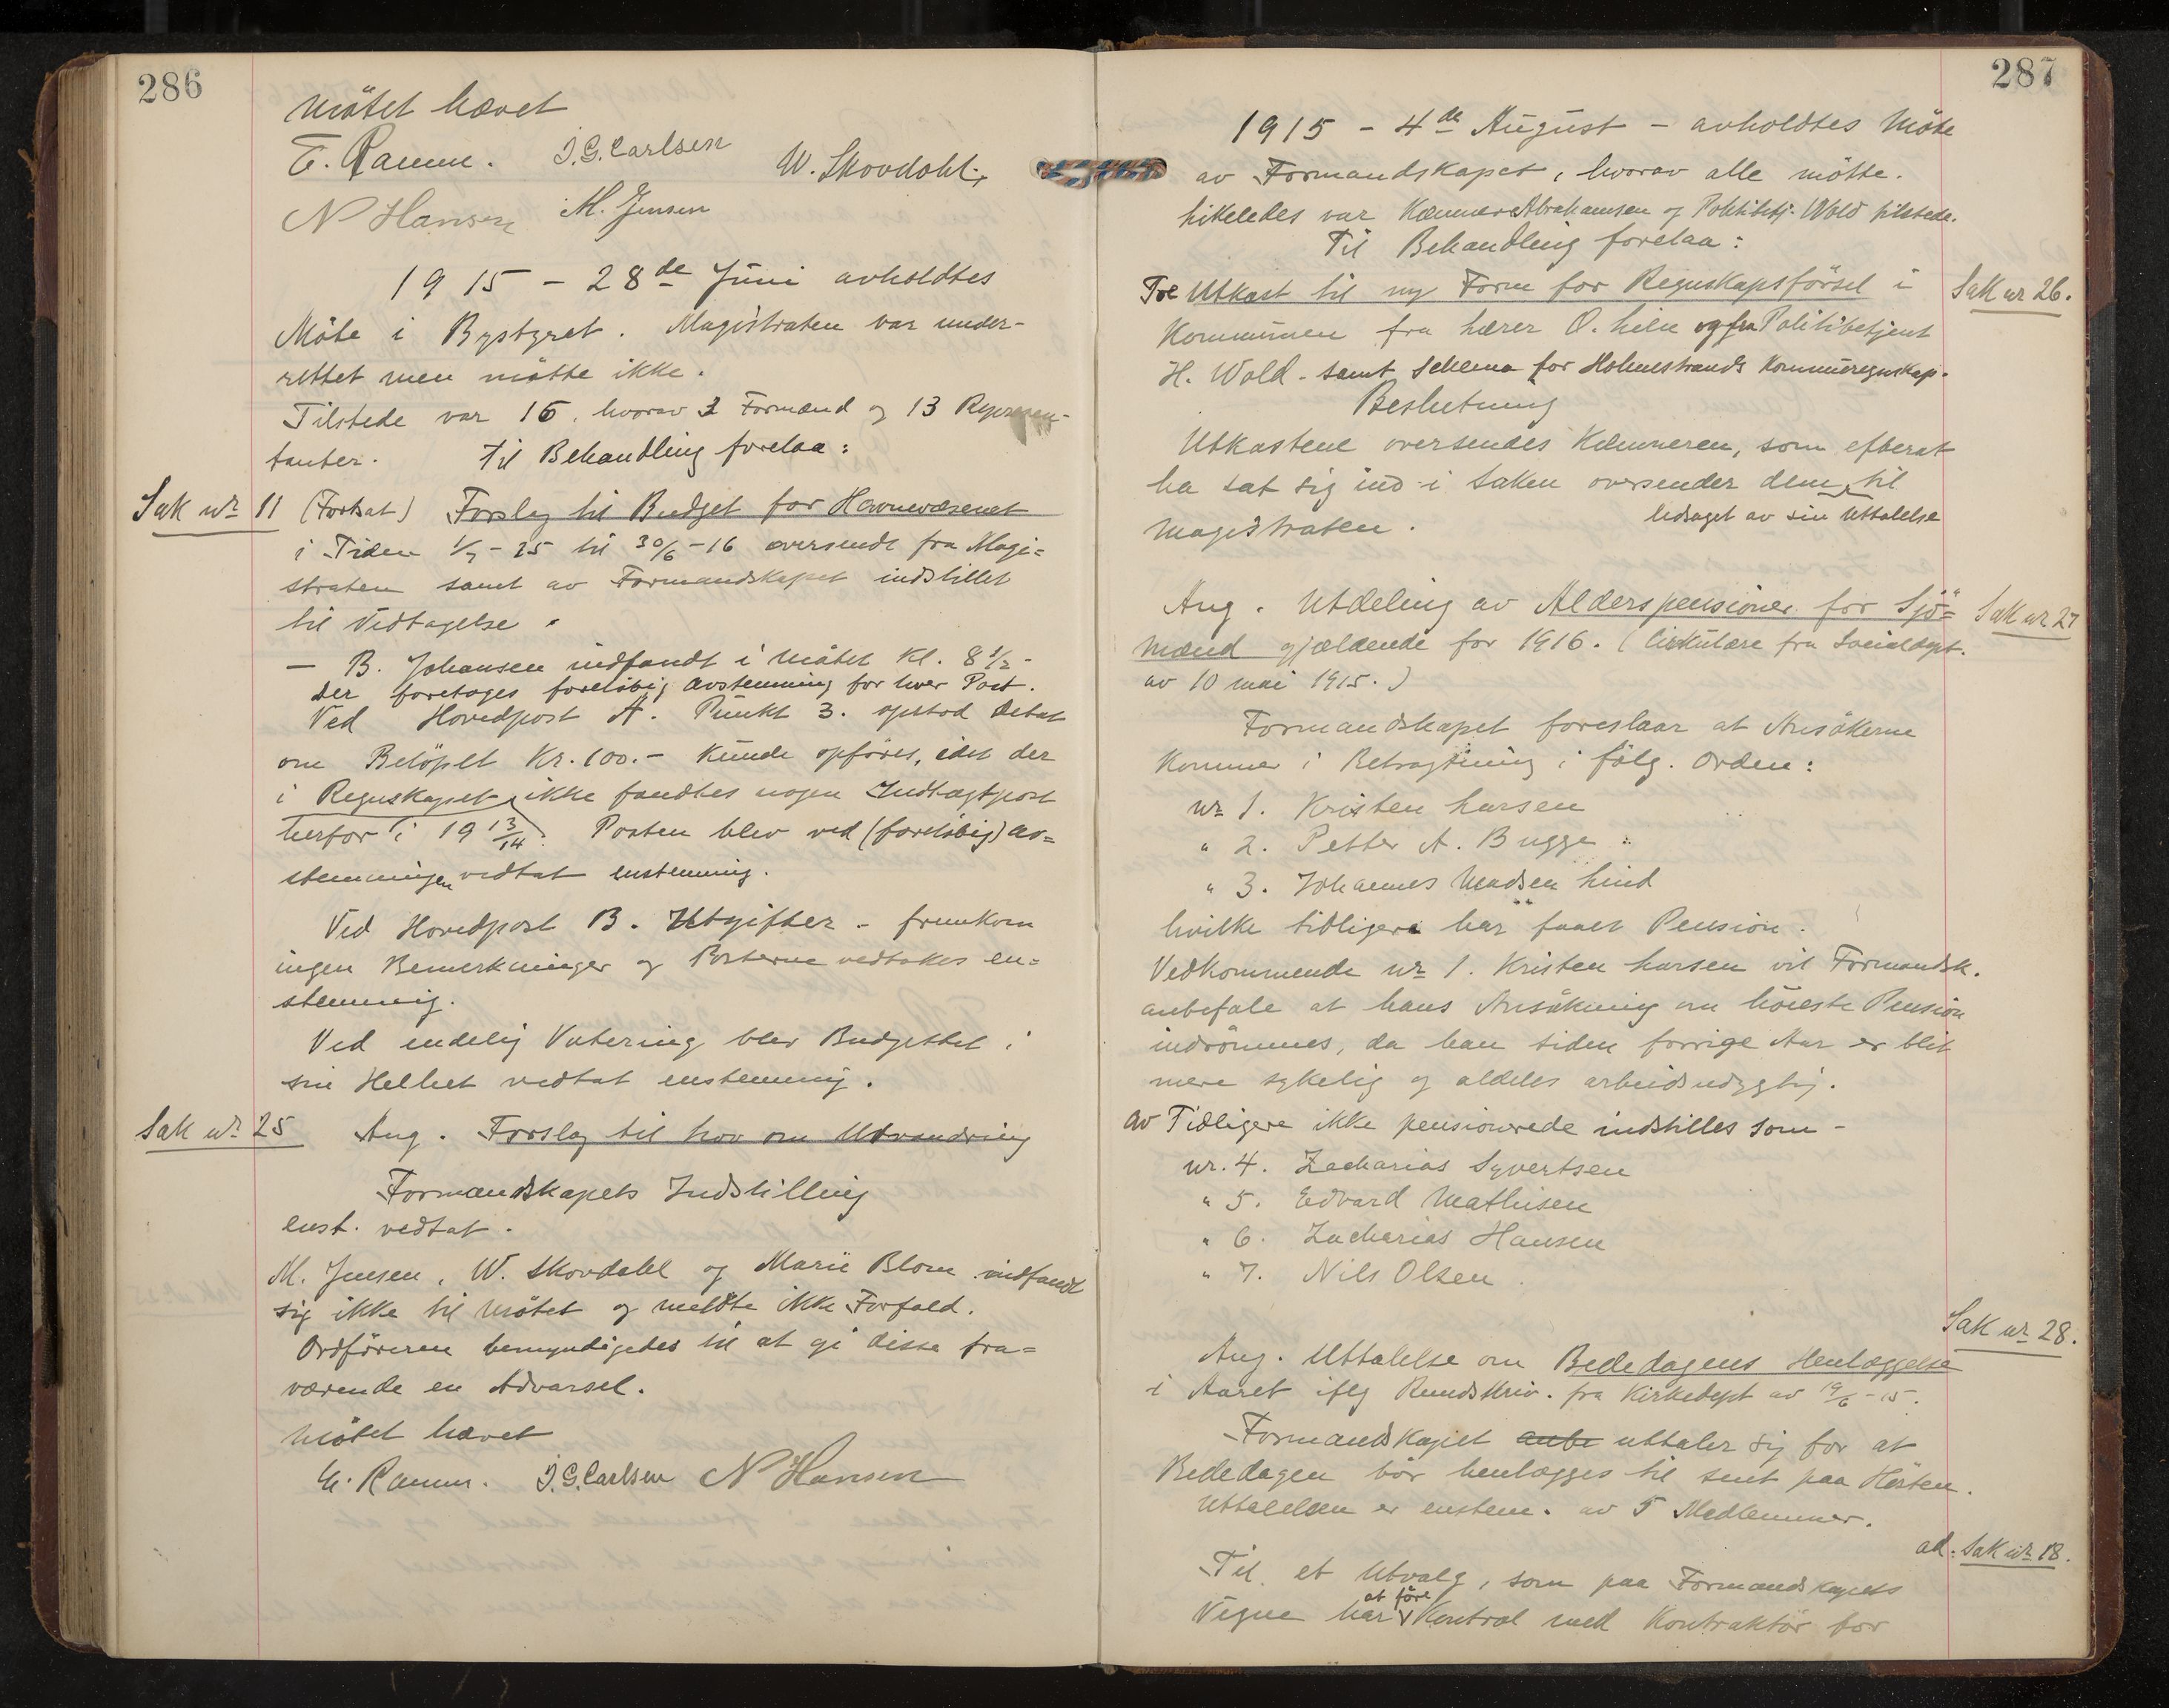 286
Mötet hævet
E. Ramm. J.G. Carlsen W. Skovdahl.
N Hansen M. Jensen
1915 - 28de Juni avholdtes
Möte i Bystyret. Magistraten var under-
rettet men mötte ikke.
Tilstede var 16, hvorav 3 Formænd og 13 Represen-
tanter. Til Behandling forelaa:
Sak nr 11 (Fortsat) Forslag til Budget for Havnevæsenet
i Tiden 1/7 - 15 til 30/6 - 16 oversendt fra Magi=
straten samt av Formandskapet indstillet
til Vedtagelse.
— B. Johansen indfandt i Mötet Kl. 8 1/2 -
Der foretages foreløbig Avstemning for hver Post.
Ved Hovedpost A. Punkt 3. opstod Debat
om Belöpet Kr. 100.- Kunde opföres, idet der
i Regnskapet ikke fandtes nogen Indtægtpost
herfor i 19 13/14. Posten blev ved (foreløbig) av=
stemningen vedtat enstemmig.
Ved Hovedpost B. Utgifter - fremkom
ingen Bemerkninger og Posterne vedtokes en=
stemmig.
Ved endelig Votering blev Budgettet i
sin Helhet vedtat enstemmig.
Sak nr 25 Ang. Forslag til Lov om Utvandring
Formandskapets Indstilling
enst. vedtat.
M. Jensen, W. Skovdahl og Marie Blom indfandt
sig ikke til Mötet og meldte ikke Forfald.
Ordföreren bemyndigedes til at gi disse fra=
værende en Advarsel.
Mötet hævet
E. Ramm. J.G. Carlsen N Hansen
287
1915 - 4de August - avholdtes Möte
av Formandskapet, hvorav alle mötte.
Likeledes var Kæmner Abrahamsen og Politibetj. Wold tilstede.
Til Behandling forelaa:
Tre Utkast til ny Form for Regnskapsförsel i Sak nr 26.
Kommunen fra Lærer O. Lien og fra Politibetjent
H. Wold - samt Schema for Holmestrands Kommuneregnskap.
Beslutning
Utkastene oversendes Kæmneren, som efterat
ha sat sig ind i Saken oversender dem til
ledsaget av sin Uttalelse
Magistraten.
Ang. Utdeling av Alderspensioner for Sjö= Sak nr 27
mænd gjældende for 1916. (Cirkulære fra Socialdept.
av 10 mai 1915.)
Formandskapet foreslaar at Ansökerne
Kommer i Betragtning i fölg. Orden:
nr 1. Kristen Larsen
" 2. Petter A. Bugge
" 3. Johannes Madsen Lind
hvilke tidligere har faaet Pension.
Vedkommende nr 1. Kristen Larsen vil Formandsk.
anbefale at hans Ansökning om höieste Pension
indrömmes, da han siden forrige Aar er blit
mere sykelig og aldeles arbeidsudygtig.
Av Tidligere ikke pensionerede indstilles som -
nr. 4. Zacharias Syvertsen
" 5. Edvard Mathisen
" 6. Zacharias Hansen
" 7. Nils Olsen.
Sak nr 28.
Ang. Uttalelse om Bededagens Henlæggelse
i Aaret iflg Rundskriv. fra Kirkedept av 19/6 - 15.
Formandskapet anbe uttaler sig for at
Bededagen bör henlægges til sent paa Hösten.
Uttalelsen er enstem. av 5 Medlemmer.
ad. Sak nr 18.
Til et Utvalg, som paa Formandskapets
Vegne har at före Kontrol med Kontraktör for